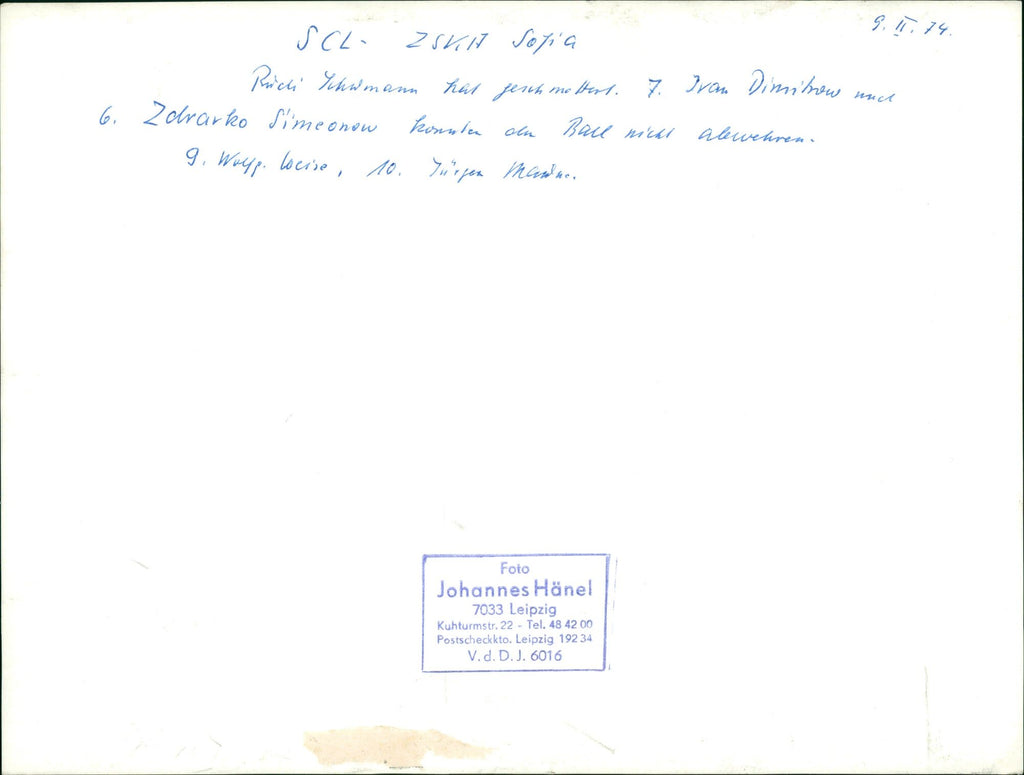 9. II. 74.
SCL - ZSKA Sofia
Rudi Schumann hat geschmettert. 7. Ivan Dimitrow und
6. Zdravko Simeonow konnten den Ball nicht abwehren.
9. Wolfg. Weise, 10. Jürgen
Foto
Johannes Hänel
7033 Leipzig
Kuhturmstr. 22 - Tel. 48 42 00
Postscheckkto. Leipzig 192 34
V. d. D. J. 6016